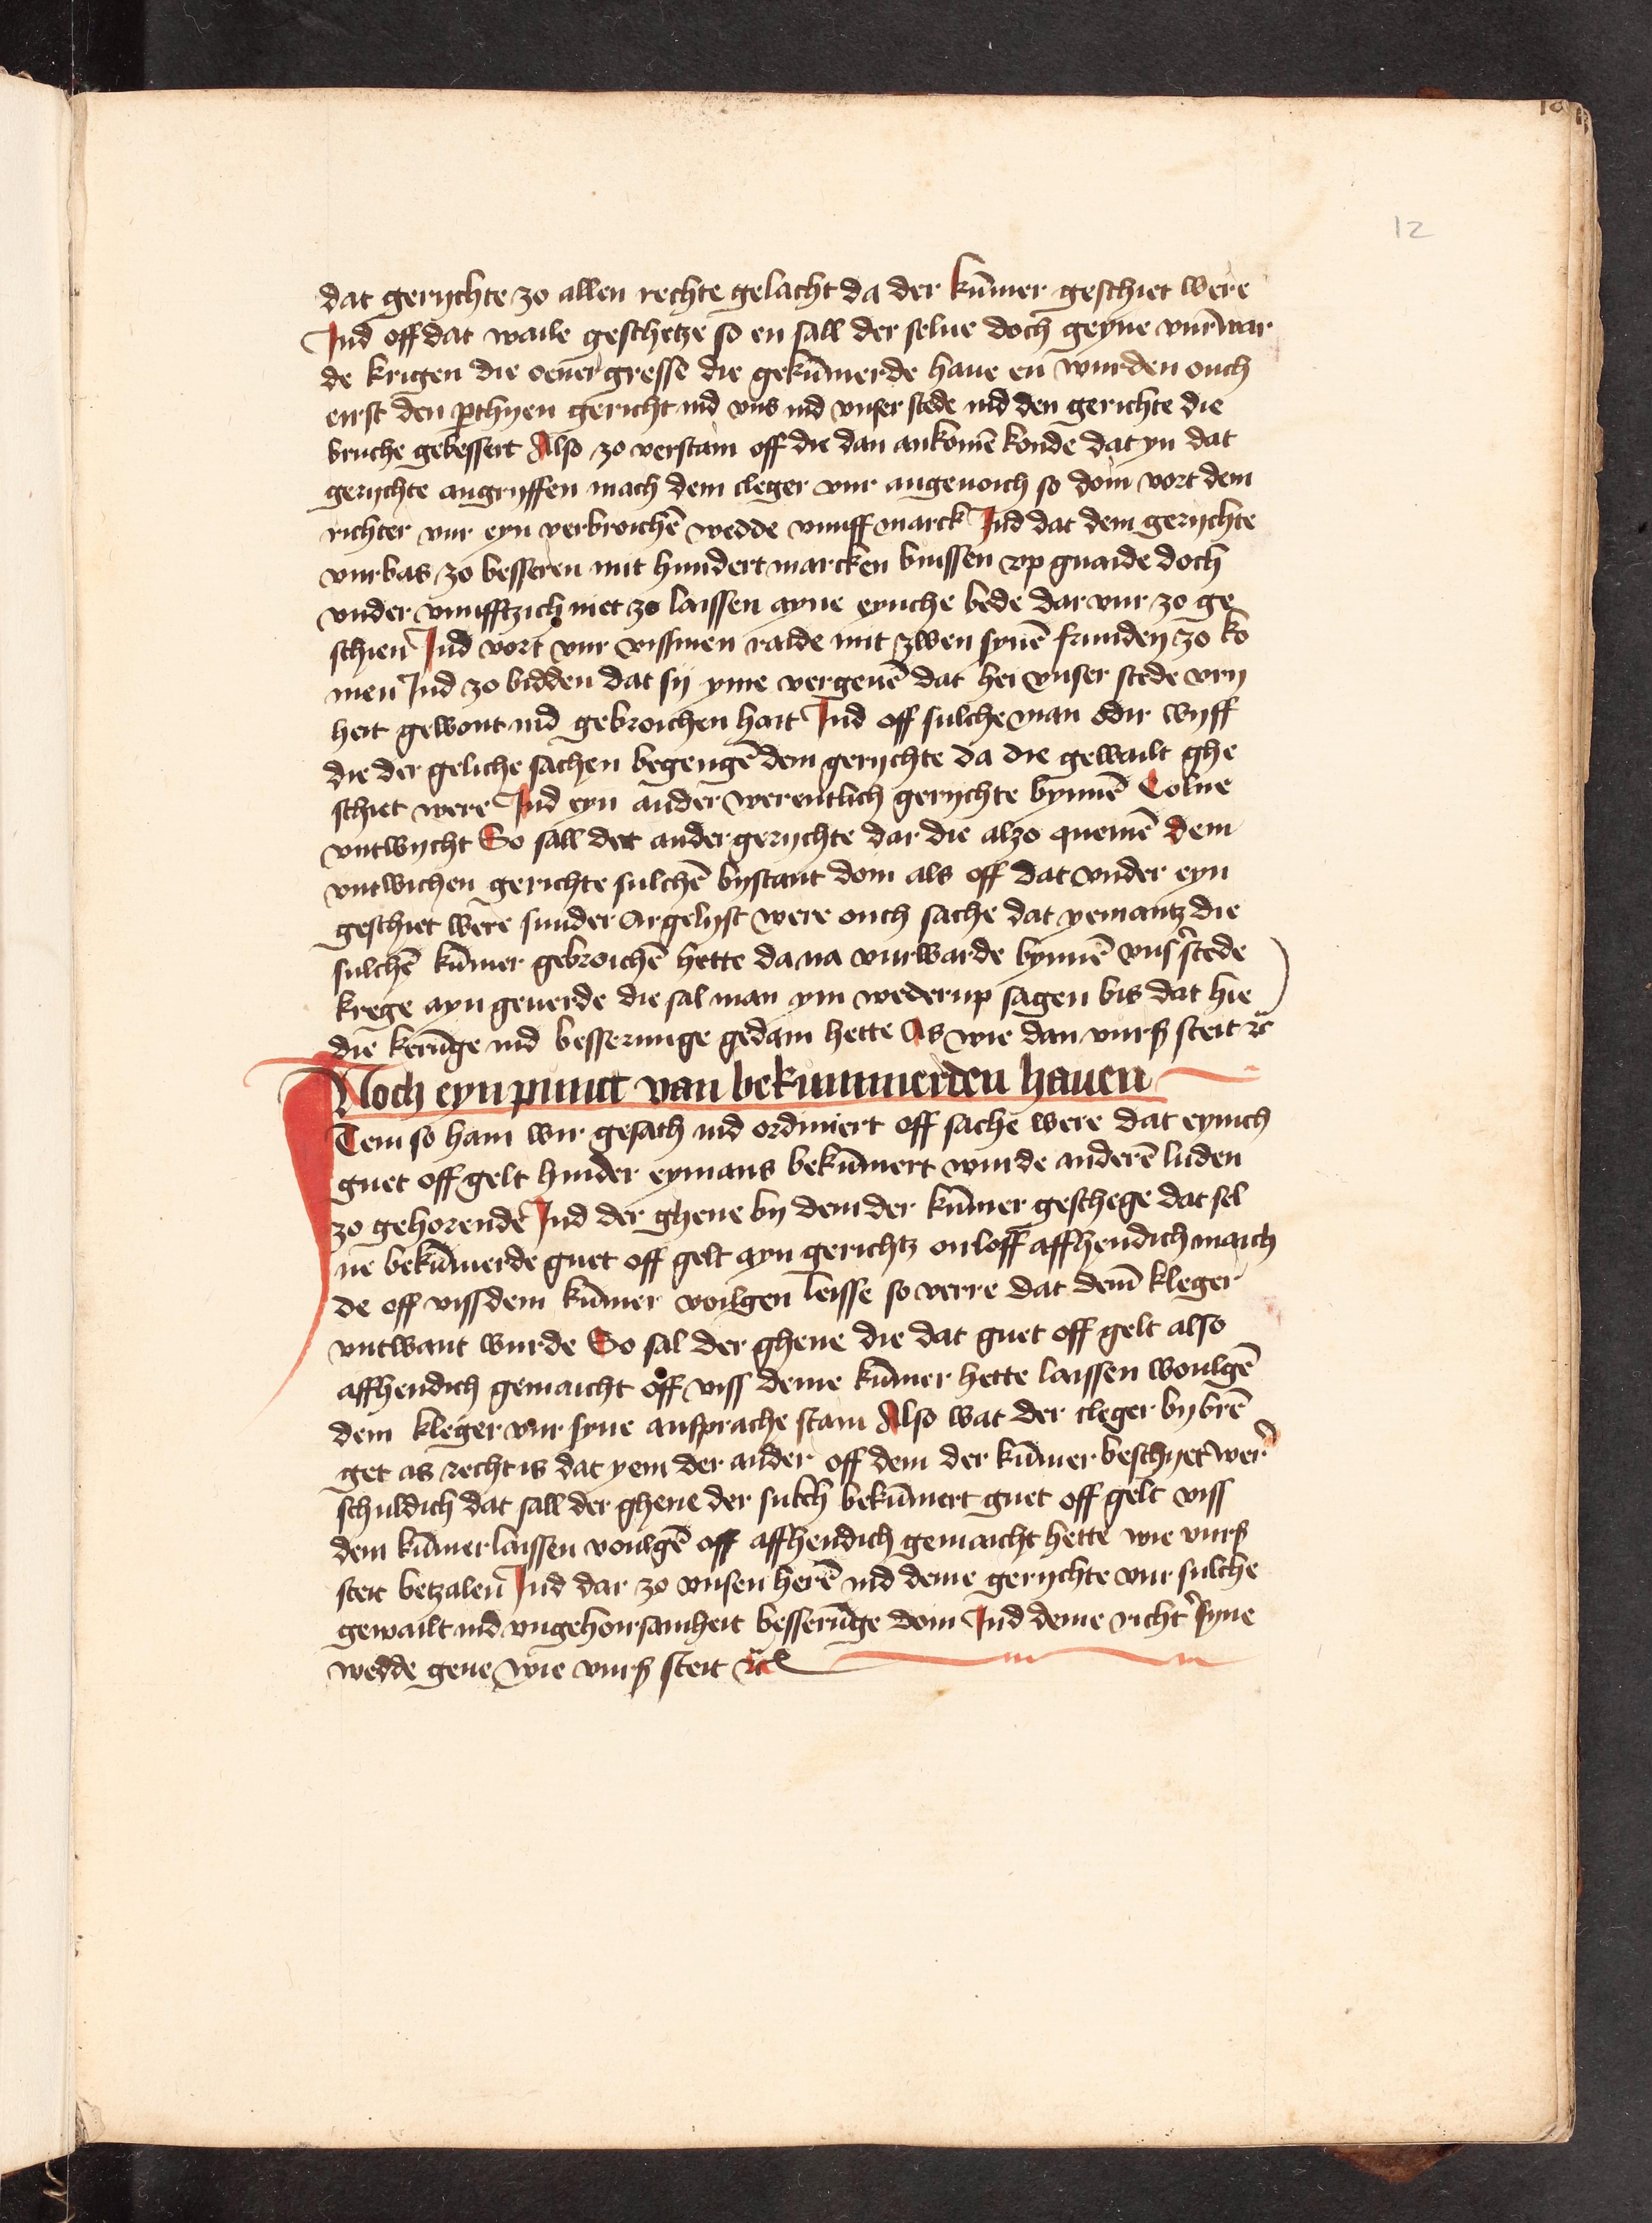 12
dat gerychte zo allen rechte gelacht da der kūmer geschiet were
Ind off dat waile geschetze so en sall der selue doch geyne vurwar
de krigen die oeuergresse die gekūmerde haue en wurden ouch
eirst den ꝑthyen gericht ind vns ind vnser stede ind den gerichte die
bruche gebessert Also zo verstain off die dan ankomē konde dat yn dat
gerychte angryffen mach dem cleger vur angenoich so doin vort dem
richter vur eyn verbroichē wedde vunff marck Ind dat dem gerychte
vurbas zo besseren mit hundert marcken buissen vp gnaide doch
vnder vunfftzich niet zo laissen ayne eynche bede dar vur zo ge
schien Ind vort vur vissmen raide mit zwen synē frunden zo ko
men Ind zo bidden dat sij yme vergeuē dat hei vnser stede vry
heit gewont ind gebroichen hait Ind off sulche man odir wyff
die der geliche sachen begengē dem gerychte da die gewailt ghe
schiet were Ind eyn ander werentlich gerychte bynnē Colne
vntwycht So sall det ander gerychte dar die alzo quemē dem
vntwichen gerichte sulchē bystant doin als off dat vnder eyn
geschiet were sunder Argelyst were ouch sache dat yemantz die
sulchē kūmer gebroichē hette da na vurwarde bynnē vnsˀ stede
krege ayn geuerde die sal man ym wederup sagen bis dat hie
die kerūge ind besserunge gedain hette As wie dan vurß steit ꝛc
Noch eyn punct van bekummerden hauen
Item so hain wir gesath ind ordiniert off sache were dat eynich
guet off gelt hinder eymans bekūmert wurde anderē luden
zo gehorende Ind der ghene by dem der kūmer geschege dat sel
ue bekūmerde guet off gelt ayn gerichtz orloff affhendich maich
de off viss dem kūmer voilgen leisse so verre dat dem kleger
vntwant wurde So sal der ghene die dat guet off gelt also
affhendich gemaicht off viss deme kūmer hette laissen voulgē
dem kleger vur syne ansprache stain Also wat der cleger bybrē
get as recht is dat yem der ander off dem der kūmer beschyet werˀ
schuldich dat sall der ghene der sulch bekūmert guet off gelt viss
dem kūmer laissen voulgē off affhendich gemaicht hette wie vurß
steit betzalen Ind dar zo vnsen herē ind deme gerychte vur sulche
gewailt ind vngehoirsamheit besserūge doin Ind deme richtˀ syne
wedde geue wie vurß steit ꝛc